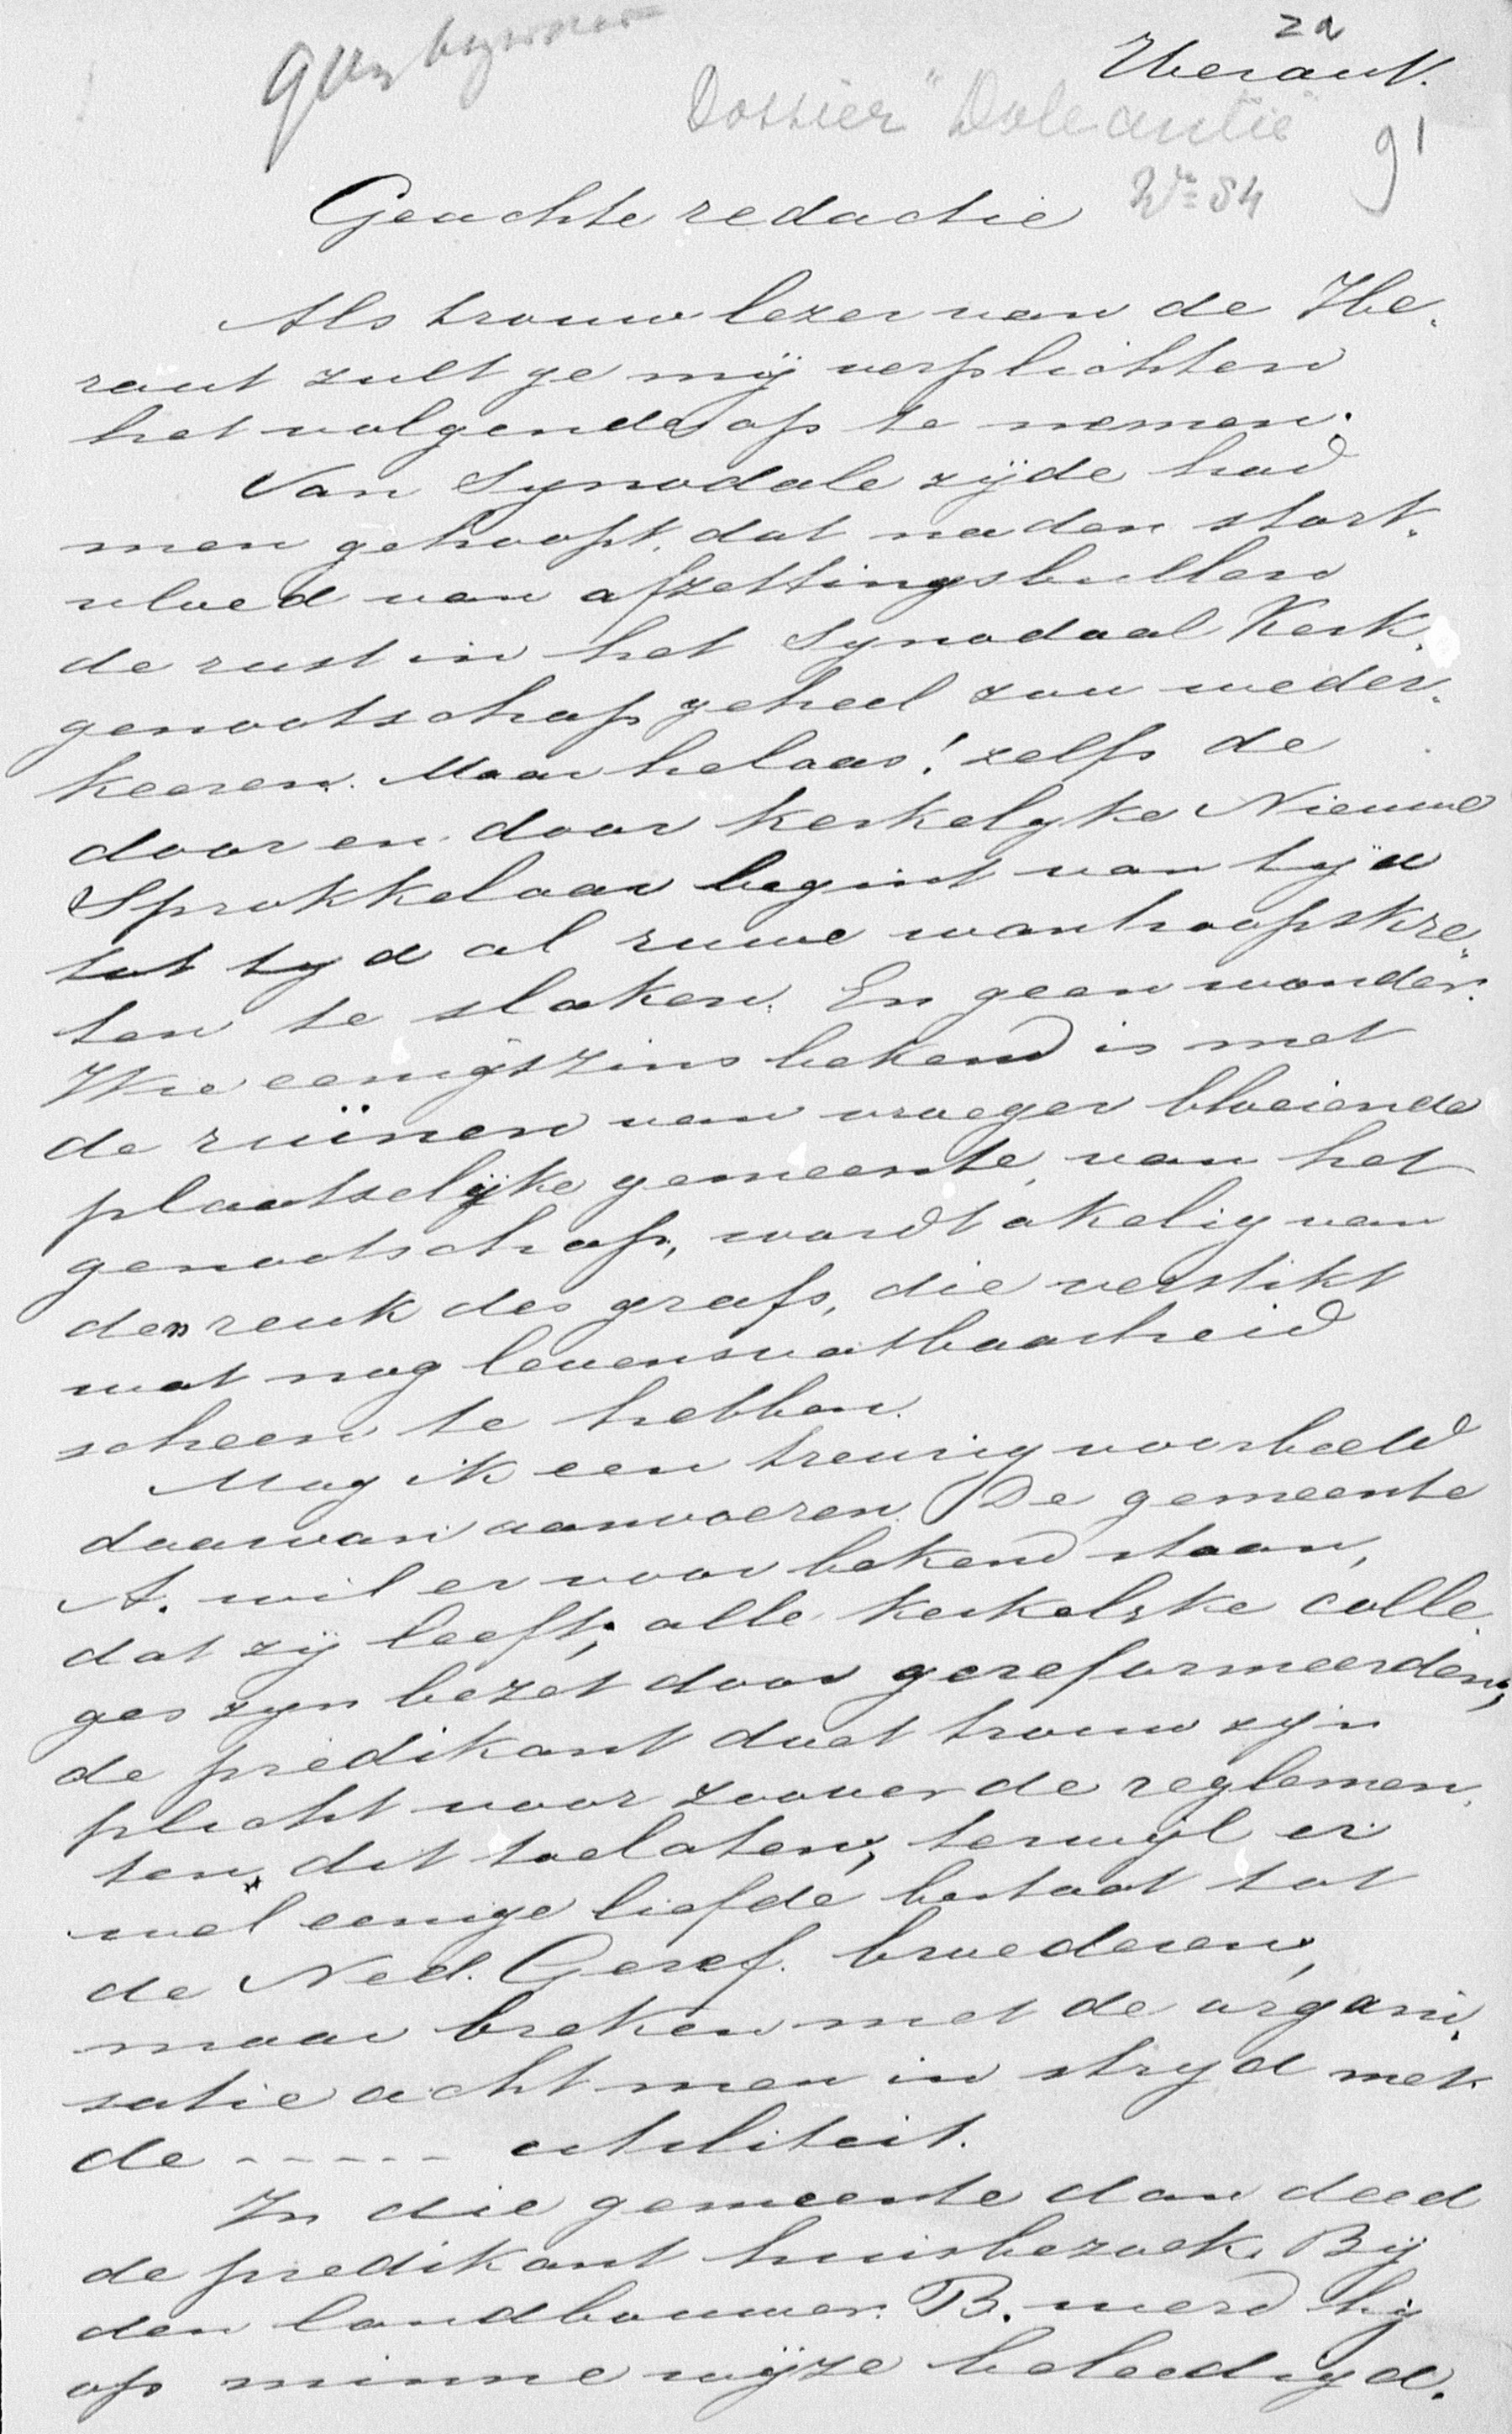 za
Heraut.
Dossier "Doleantie"
91
No 84
Geachte redactie
Als trouw lezer van de He-
raut zult ge mij verplichten
het volgende op te nemen.
Van Synodale zijde had
men gehoopt, dat na den stort-
vloed van afzettingsbullen
de rust in het Synodaal Kerk-
genootschap geheel zou weder-
keeren. Maar helaas! zelfs de
door en door kerkelyke Nieuwe
Sprokkelaar begint van tijd
tot tyd al ruwe wanhoopskre-
ten te slaken. En geen wonder.
Wie eenigszins bekend is met
de ruïnen van vroeger bloeiende
plaatselijke gemeente, van het
genootschap, wordt akelig van
den reuk des grafs, die verstikt
wat nog levensvatbaarheid
scheen te hebben.
Mag ik een treurig voorbeeld
daarvan aanvoeren. De gemeente
A. wil er voor bekend staan,
dat zij leeft; alle kerkelyke colle-
ges zyn bezet door gereformeerden;
de predikant doet trouw zyn
plicht voor zoover de reglemen-
ten dit toelaten; terwijl er
wel eenige liefde bestaat tot
de Ned. Geref. broederen,
maar breken met de organi-
satie acht men in stryd met
de ----- utiliteit.
In die gemeente dan deed
de predikant huisbezoek. Bij
den landbouwer B. werd hy
op minne wijze beleedigd.